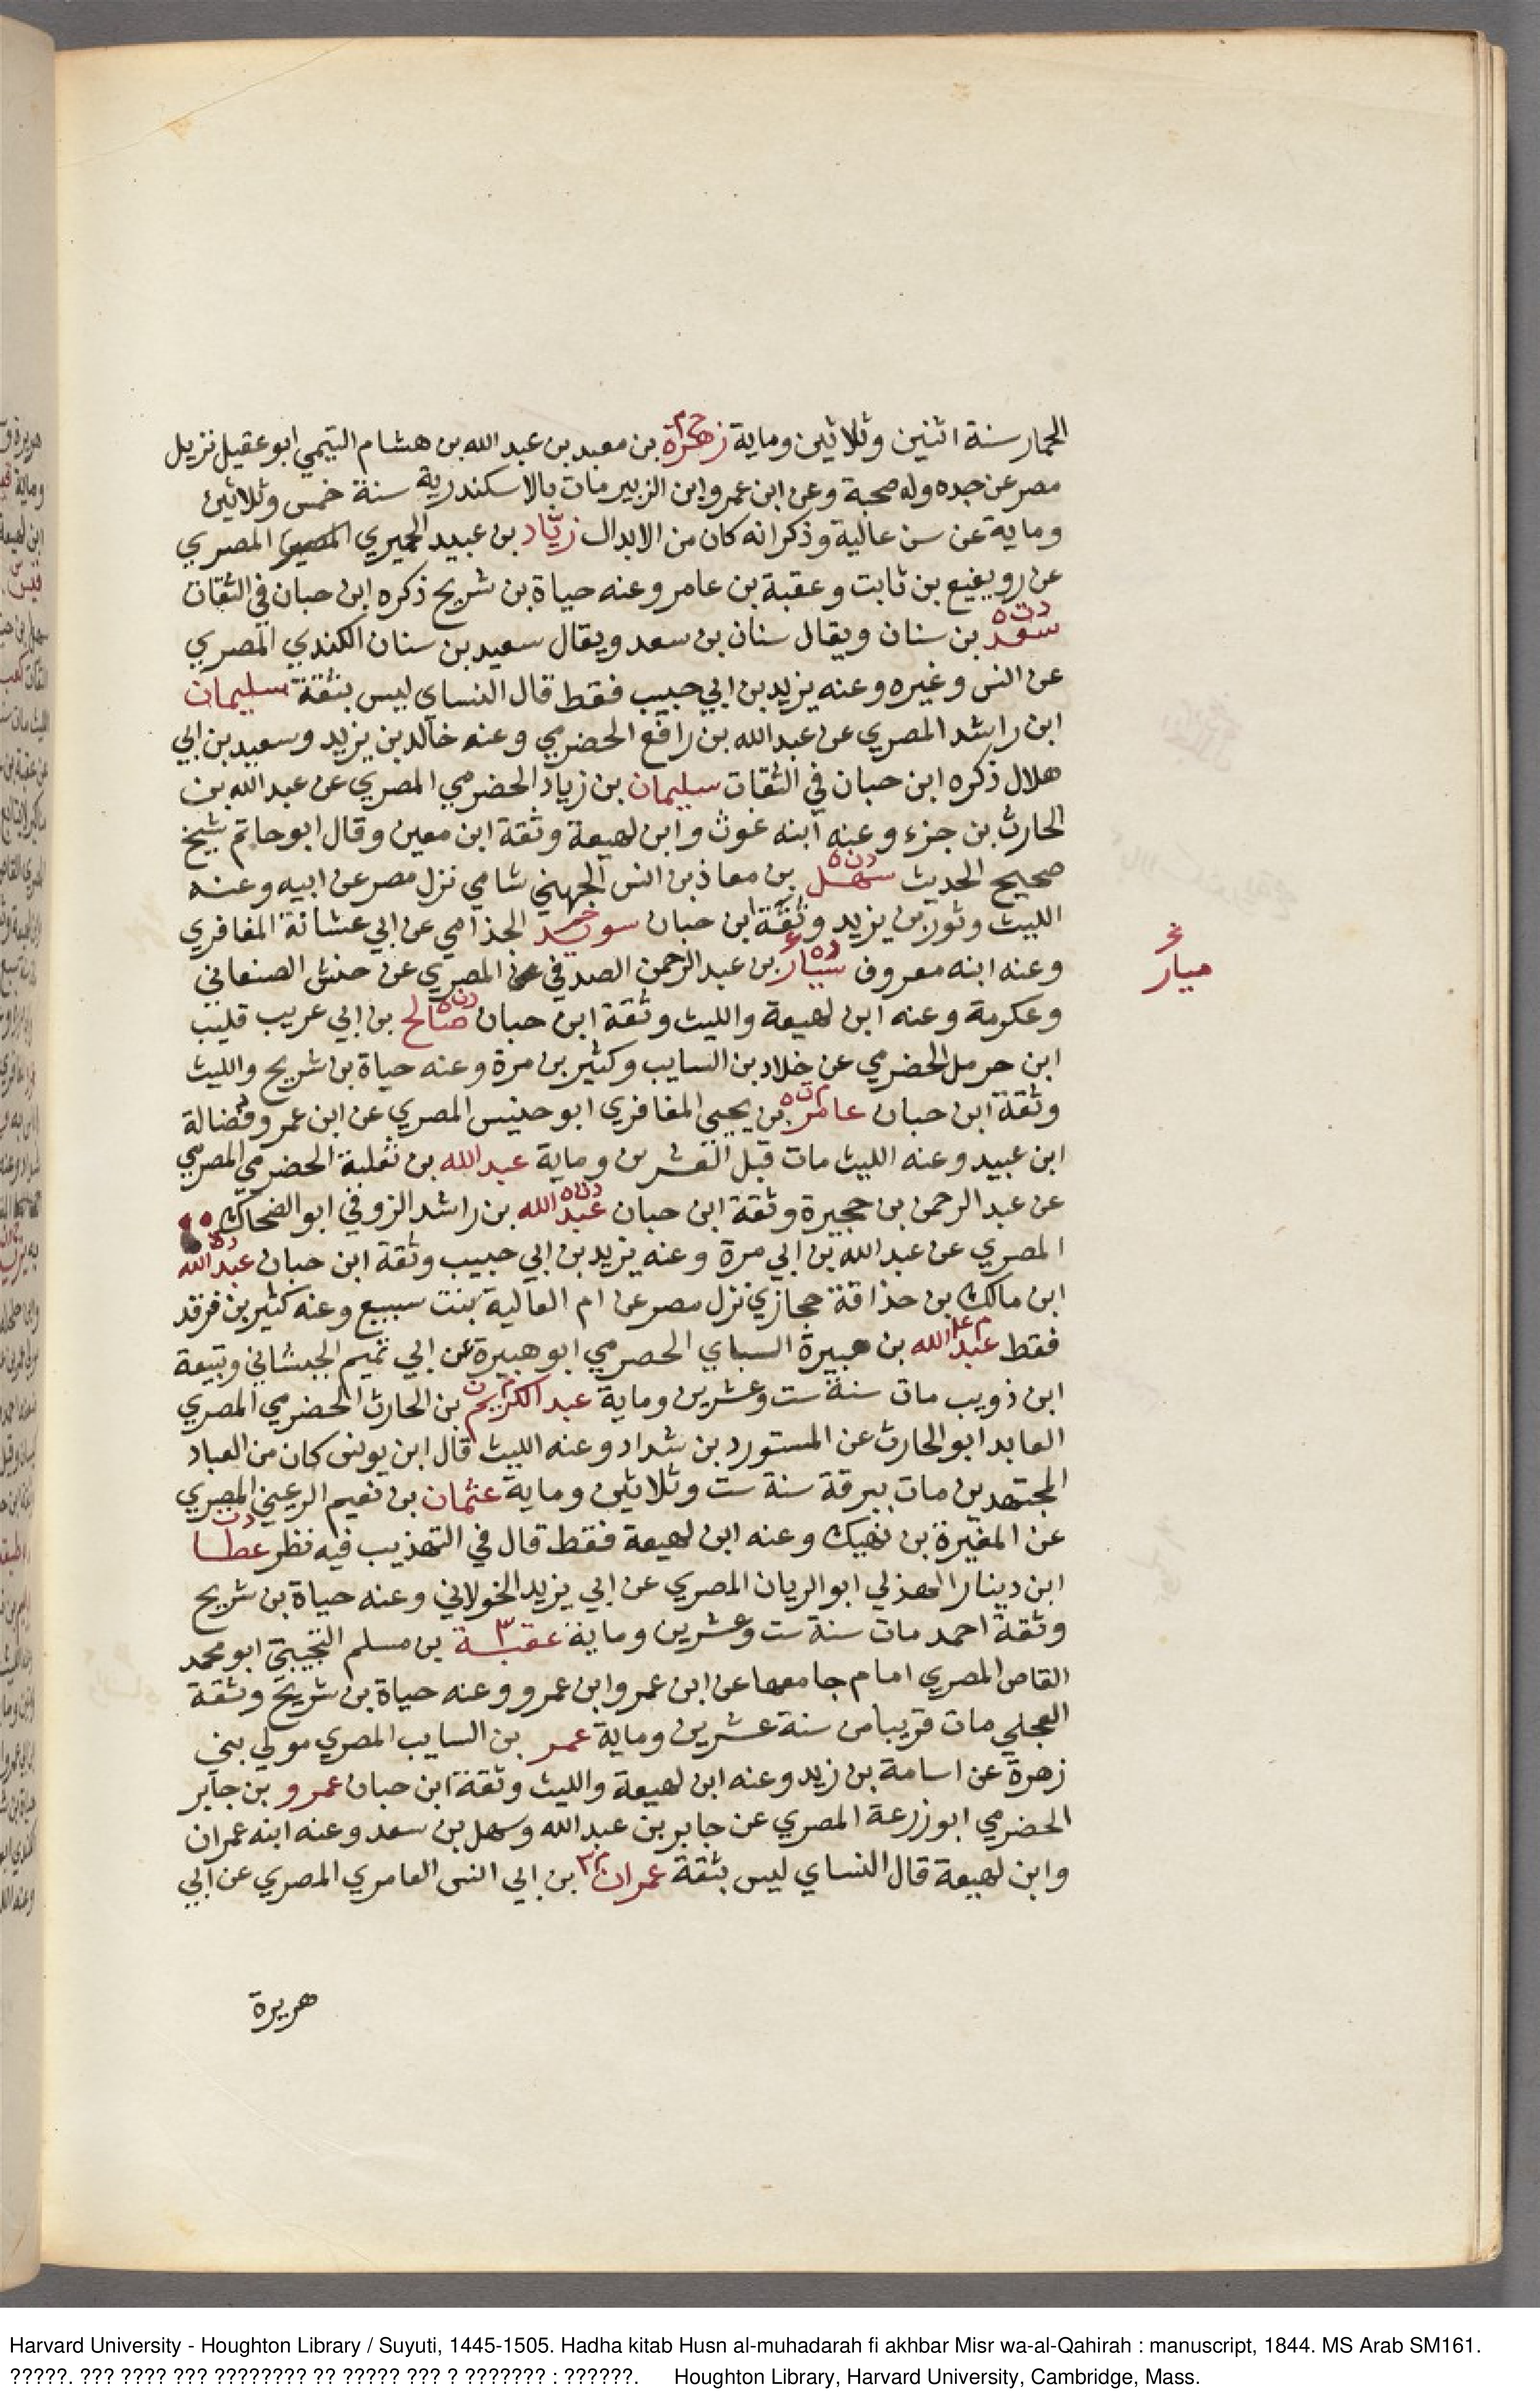 الحمار سنة اثنين وثلاثين وماية زهرة بن معبد بن عبد الله بن هشام التيمي ابو عقيل نزيل
مصر عن جده وله صحبة وعن ابن عمر وابن الزبير مات بالاسكندرية سنة خمس وثلاثين
وماية عن سن عالية وذكر انه كان من الابدال زياد بن عبيد الحميري المصري
عن رويفيع بن ثابت وعقبة بن عامر وعنه حياة بن شريح ذكره ابن حبان في الثقات
سعد بن سنان ويقال سنان بن سعد ويقال سعيد بن سنان الكندي المصري
عن انس وغيره وعنه يزيد بن ابي حبيب فقط قال النساي ليس بثقة سليمان
ابن راشد المصري عن عبد الله بن رافع الحضرمي وعنه خالد بن يزيد وسعيد بن ابي
هلال ذكره ابن حبان في الثقات سليمان بن زياد الحضرمي المصري عن عبد الله بن
الحارث بن جزء وعنه ابنه غوث وابن لهيعة وثقة ابن معين وقال ابو حاتم شيخ
صحيح الحديث سهل بن معاذ بن انس الجهني شامي نزل مصر عن ابيه وعنه
الليث وثور بن يزيد وثقة ابن حبان سويد الجذامي عن ابي عشانة المغافري
وعنه ابنه معروف شيبار بن عبد الرحمن الصدفي المصري عن حنش الصنعاني
نخ
ميار
وعكرمة وعنه ابن لهيعة والليث وثقة ابن حبان صالح بن ابي عريب قليب
ابن حرمل الحضرمي عن خلاد بن السايب وكثير بن مرة وعنه حياة بن شريح والليث
وثقة ابن حبان عامر بن يحيى المغافري ابو حنيس المصري عن ابن عمر وفضالة
ابن عبيد وعنه الليث مات قبل العشرين وماية عبد الله بن ثعلبة الحضرمي المصرمي
عن عبد الرحمن بن حجيرة وثقة ابن حبان عبد الله بن راشد الزوفي ابو الضحاك
المصري عن عبد الله بن ابي مرة وعنه يزيد بن ابي حبيب وثقة ابن حبان عبد الله
ابن مالك بن حذافة حجازي نزل مصر عن ام العالية بنت سبيع وعنه كثير بن فرقد
فقط عبد الله بن هبيرة السباي الحصرمي ابو هبيرة عن ابي تميم الجيشاني وتبيعة
ابن ذويب مات سنة ست وعشرين وماية عبد الكريم بن الحارث الحضرمي المصري
العابد ابو الحارث عن المستورد بن شداد وعنه الليث قال ابن يونس كان من العباد
المجتهدين مات ببرقة سنة ست وثلاثين وماية عثمان بن نعيم الرعيني المصري
عن المغيرة بن نهيك وعنه ابن لهيعة فقط قال في التهذيب فيه نظر عطا
ابن دينار الهذلي ابو الريان المصري عن ابي يزيد الخولاني وعنه حياة بن شريح
وثقة احمد مات سنة ست وعشرين وماية عقبة بن مسلم التجيبي ابو محمد
القاص المصري امام جامعها عن ابن عمر وابن عمرو وعنه حياة بن شريح وثقة
العجلي مات قريبا من سنة عشرين وماية عمر بن السايب المصري مولي بني
زهرة عن اسامة بن زيد وعنه ابن لهيعة والليث وثقة ابن حبان عمرو بن جابر
الحضرمي ابو زرعة المصري عن جابر بن عبد الله وسهل بن سعد وعنه ابنه عمران
وابن لهيعة قال النساي ليس بثقة عمران بن ابي انس العامري المصري عن ابي
هريرة
Harvard University - Houghton Library / Suyuti, 1445-1505. Hadha kitab Husn al-muhadarah fi akhbar Misr wa-al-Qahirah : manuscript, 1844. MS Arab SM161.
?????. ??? ???? ??? ???????? ?? ????? ??? ? ??????? : ??????. Houghton Library, Harvard University, Cambridge, Mass.